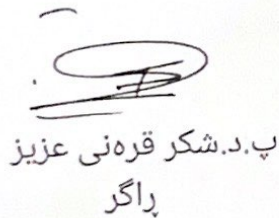 پ.د.شکر قرەنی عزیز
ڕاگر